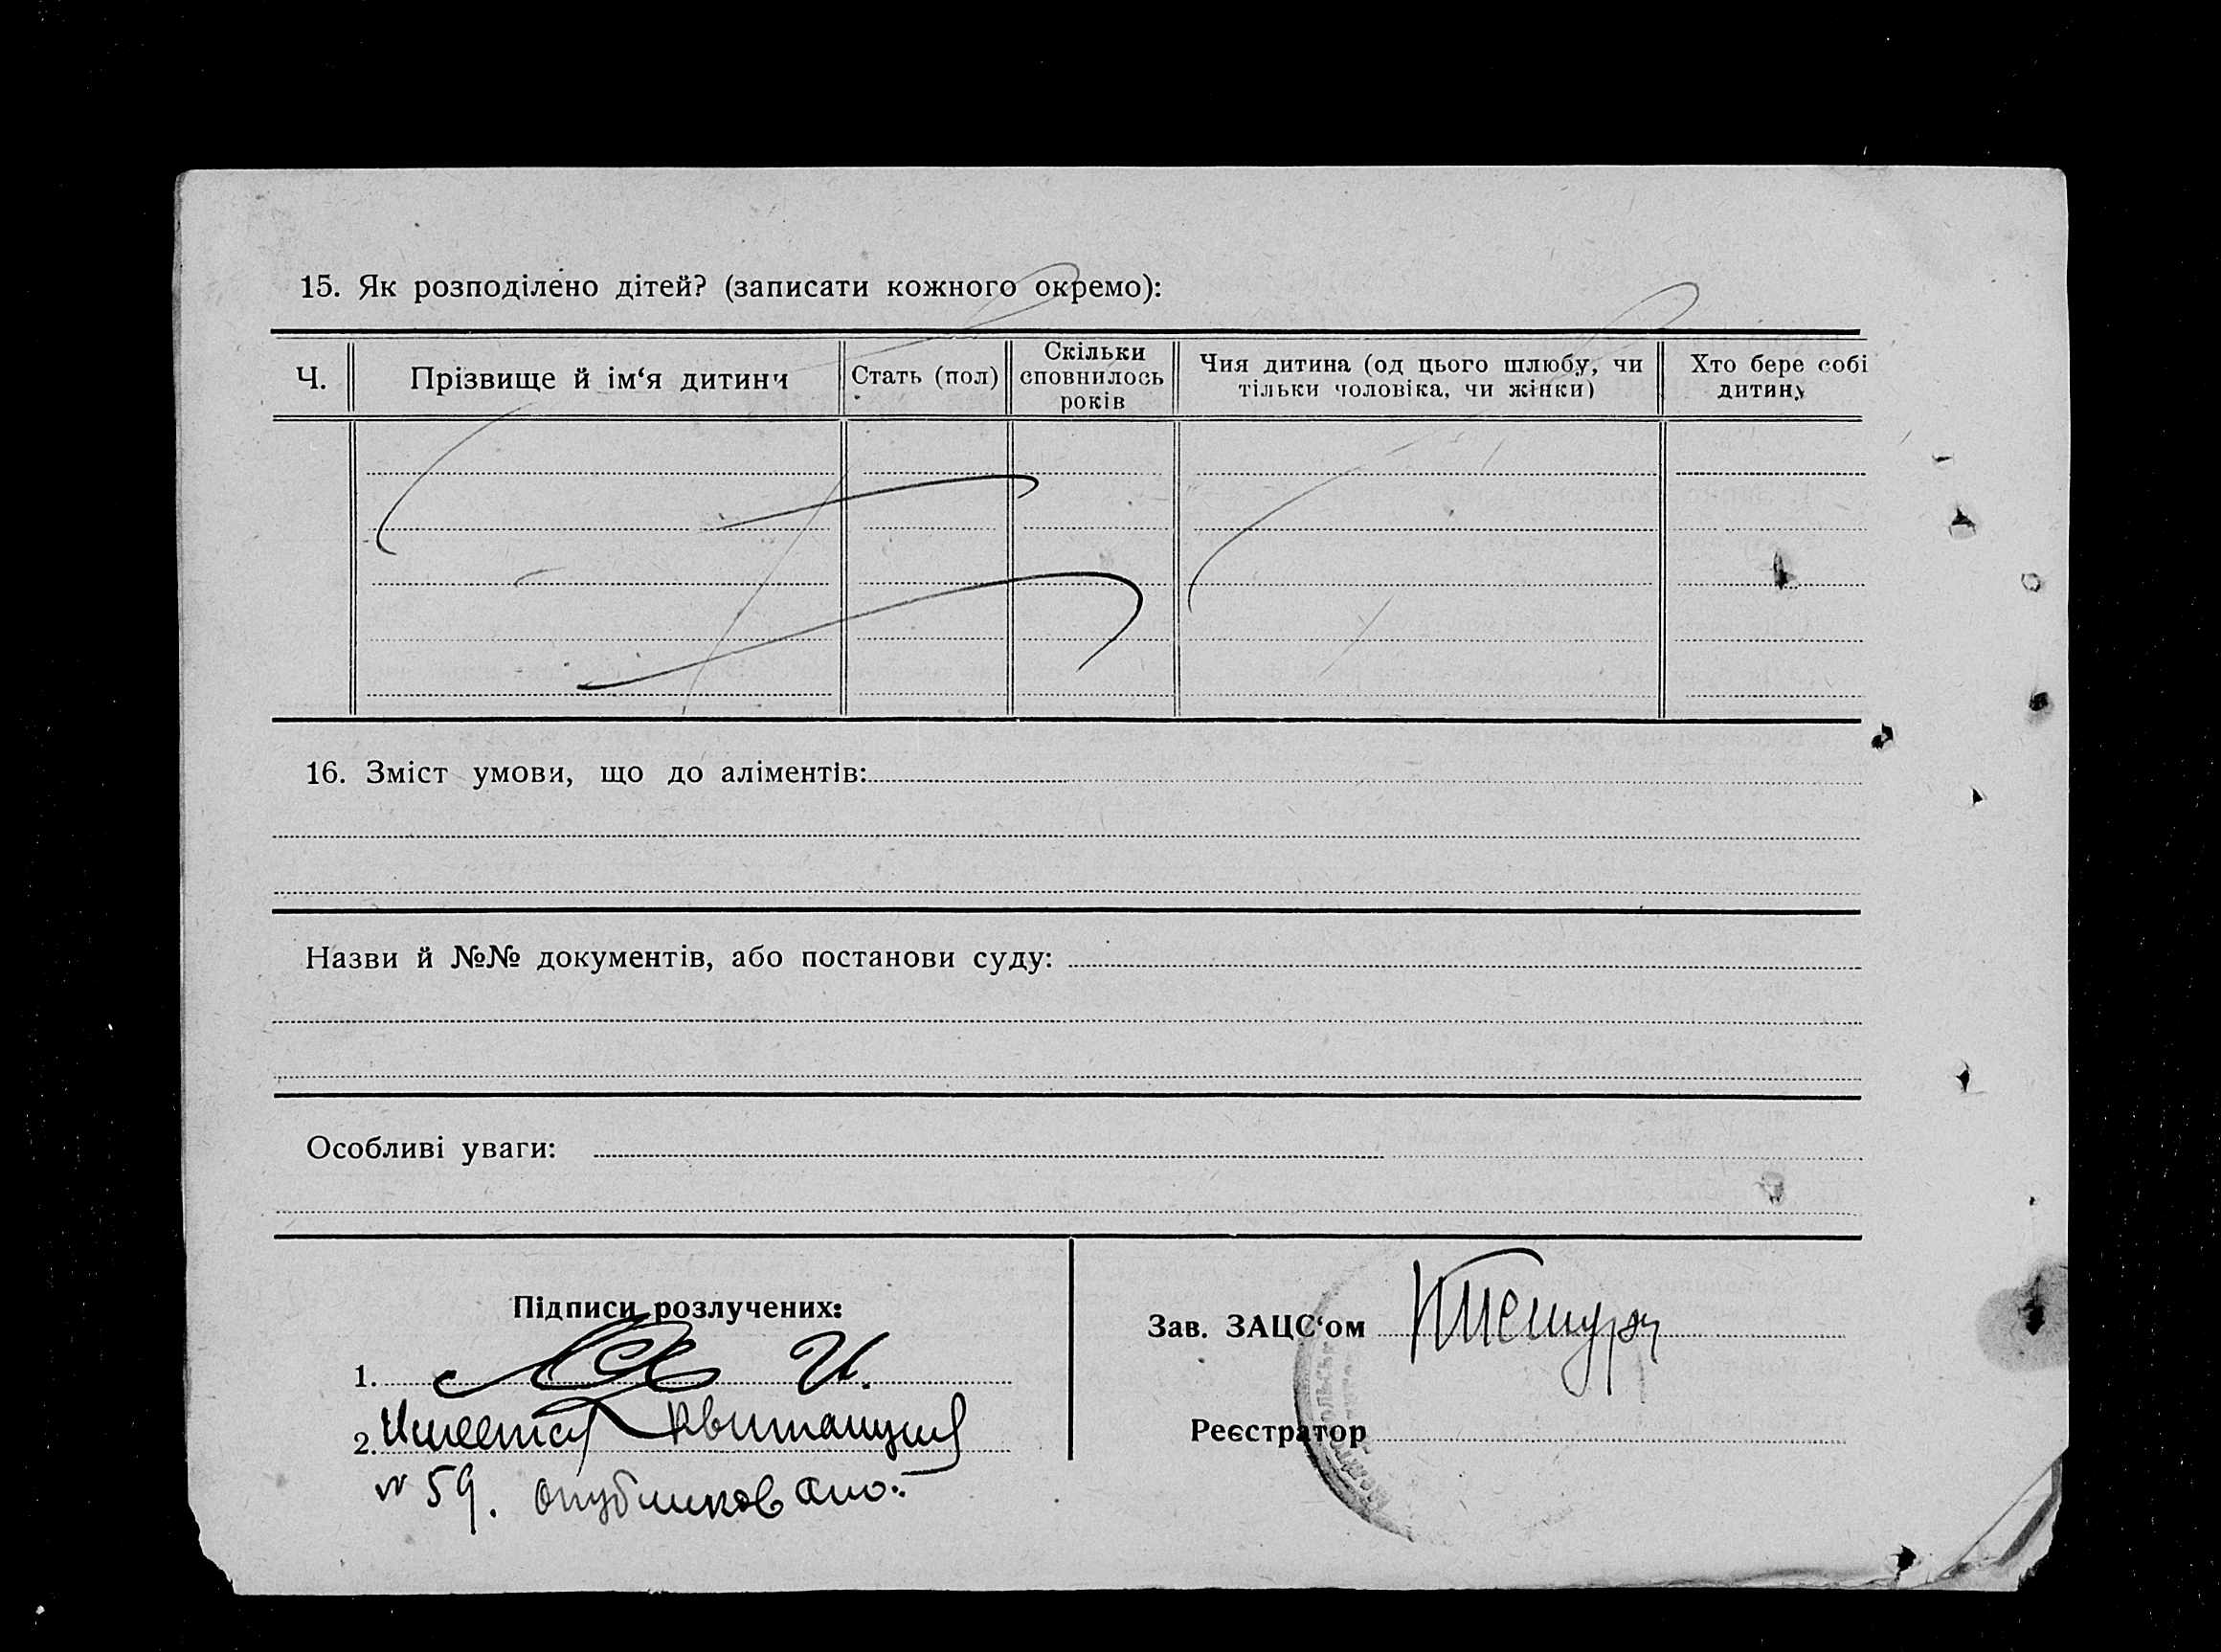 15. Як розподілено дітей? (записати кожного окремо):
Ч.
Прізвище й ім‘я дитини
Стать (пол)
Скільки
сповнилось
років
Чия дитина (од цього шлюбу, чи
тільки чоловіка, чи жінки)
Хто бере собі
дитину
16. Зміст умови, що до аліментів:
Назви й №№ документів, або постанови суду:
Особливі уваги:
Підписи розлучених:
1. И.
2. Имеется квитанция
N 59. опубликовано.
Зав. ЗАЦС‘ом
Реєстратор